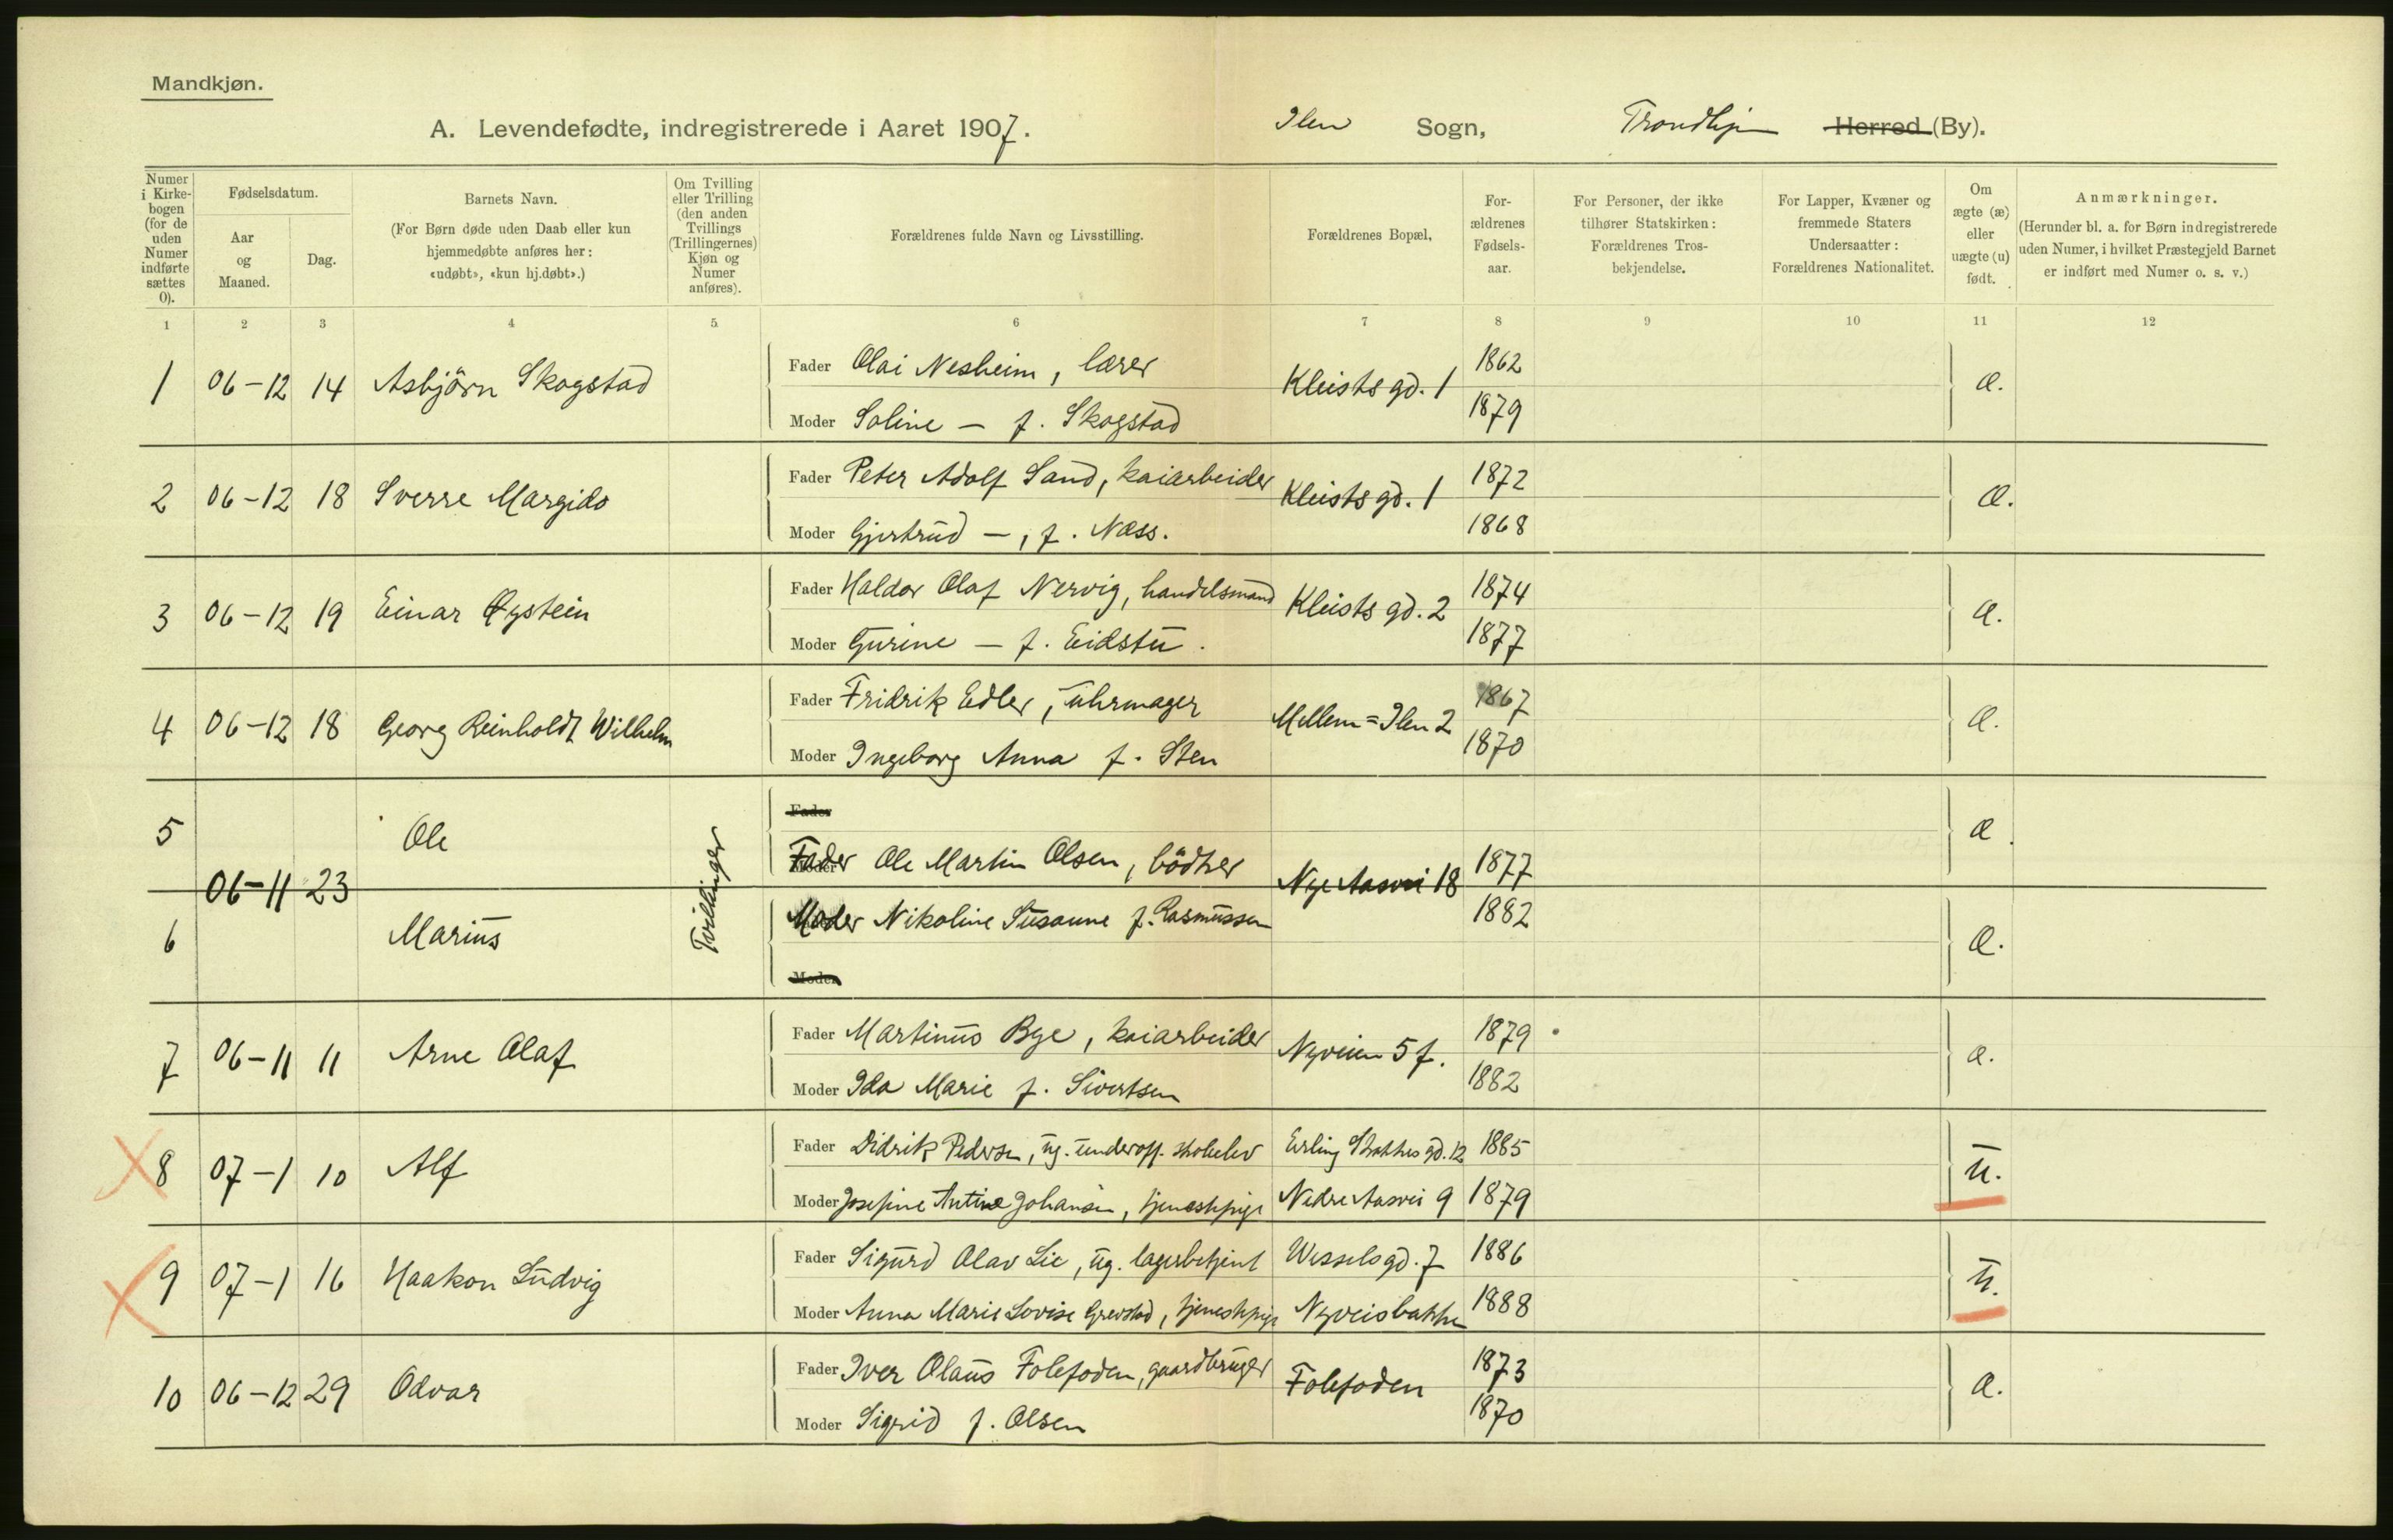 Mandkjøn.
A. Levendefødte, indregistrerede i Aaret 1907. Ilen Sogn, Trondhjem Herred (By).
Numer i Kirkebogen (for de uden Numer indførte sættes 0).
Fødselsdatum.
Aar og Maaned.
Dag.
Barnets Navn.
(For Børn døde uden Daab eller kun hjemmedøbte anføres her: «udøbt», «kun hj.døbt».)
Om Tvilling eller Trilling (den anden Tvillings (Trillingernes) Kjøn og Numer anføres).
Forældrenes fulde Navn og Livsstilling.
Forældrenes Bopæl,
Forældrenes Fødselsaar.
For Personer, der ikke tilhører Statskirken: Forældrenes Trosbekjendelse.
For Lapper, Kvæner og fremmede Staters Undersaatter: Forældrenes Nationalitet.
Om ægte (æ) eller uægte (u) født.
Anmærkninger.
(Herunder bl. a. for Børn indregistrerede uden Numer, i hvilket Præstegjeld Barnet er indført med Numer o. s. v.)
1 2 3 4 5 6 7 8 9 10 11 12
1 06-12 14 Asbjörn Skogstad Fader Olai Nesheim, lærer Kleists gd. 1 1862 æ.
Moder Soline — f. Skogstad 1879
2 06-12 18 Sverre Margido Fader Peter Adolf Sand, kaiarbeider Kleists gd. 1 1872 æ.
Moder Gjertrud —, f. Næss. 1868
3 06-12 19 Einar Øystein Fader Haldor Olaf Nervig, handelsmand Kleists gd. 2 1874 æ.
Moder Gurine — f. Eidstu. 1877
4 06-12 18 Georg Reinholdt Wilhelm Fader Fridrik Edler, uhrmager Mellem=Ilen 2 1867 æ.
Moder Ingeborg Anna f. Sten 1870
5 Ole Fader æ.
06-11 23 Tvillinger Fader Ole Martin Olsen, bödker Nye Aasvei 18 1877
6 Marius Moder Nikoline Susanne f. Rasmussen 1882 æ.
Moder
7 06-11 11 Arne Olaf Fader Martinus Bye, kaiarbeider Nyveien 5 f. 1879 æ.
Moder Ida Marie f. Sivertsen 1882
8 07-1 10 Alf Fader Didrik Pedersen, ug. underoff. skoleelev Erling Skakkes gd. 12 1885 u.
Moder Josefine Antine Johansen, tjenestepige Nedre Aasvei 9 1879
9 07-1 16 Haakon Ludvig Fader Sigurd Olav Lie, ug. lagerbetjent Wessels gd. 7 1886 u.
Moder Anna Marie Lovise Grevstad, tjenestepige Nyveisbakke 1888
10 06-12 29 Odvar Fader Iver Olaus Folefoden, gaardbruger Folefoden 1873 æ.
Moder Sigrid f. Olsen 1870